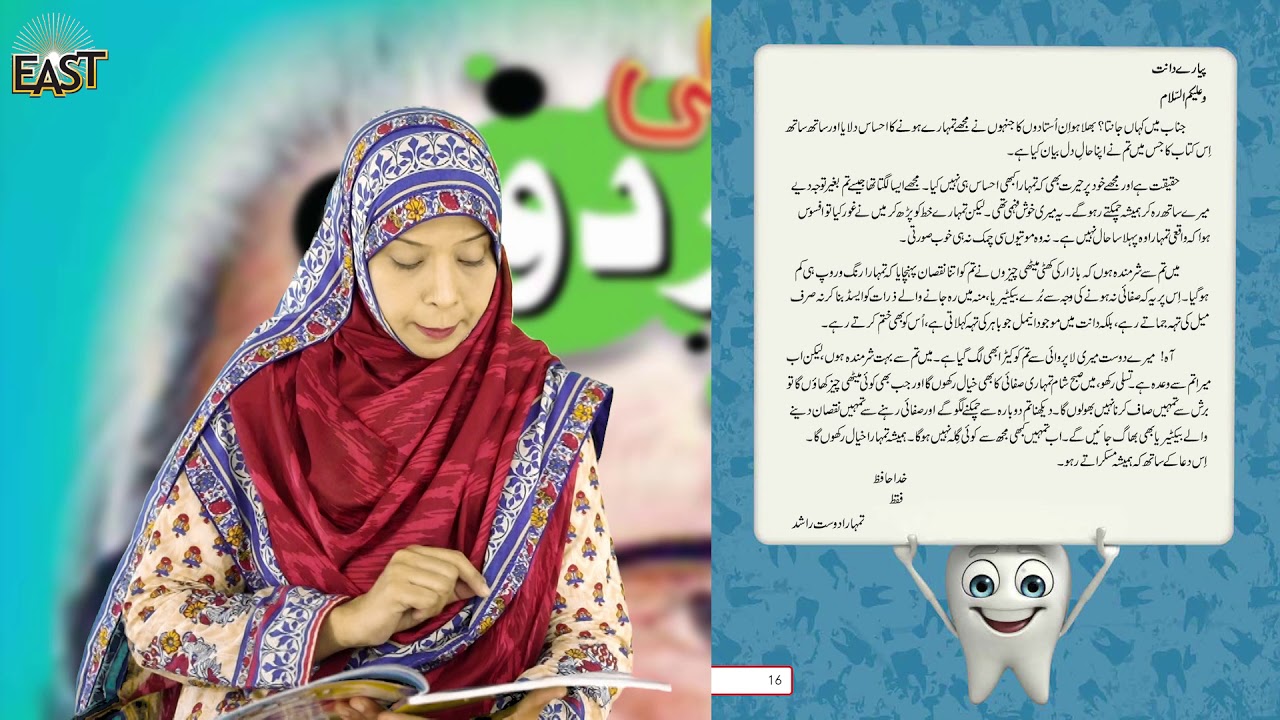 EAST
ردو
پیارے دانت
وعلیکم السّلام
جناب میں کہاں جانتا؟ بھلا ہو اِن اُستادوں کا جنہوں نے مجھے تمہارے ہونے کا احساس دلایا اور ساتھ ساتھ
اِس کتاب کا جس میں تم نے اپنا حالِ دل بیان کیا ہے۔
حقیقت ہے اور مجھے خود پر حیرت بھی کہ تمہارا کبھی احساس ہی نہیں کیا۔ مجھے ایسا لگتا تھا جیسے تم بغیر توجہ دیے
میرے ساتھ رہ کر ہمیشہ چمکتے رہو گے۔ یہ میری خوش فہمی تھی۔ لیکن تمہارے خط کو پڑھ کر میں نے غور کیا تو افسوس
ہوا کہ واقعی تمہارا وہ پہلا سا حال نہیں ہے۔ نہ وہ موتیوں سی چمک نہ ہی خوب صورتی۔
میں تم سے شرمندہ ہوں کہ بازار کی کھٹی میٹھی چیزوں نے تم کو اتنا نقصان پہنچایا کہ تمہارا رنگ و روپ ہی کم
ہو گیا۔ اِس پر یہ کہ صفائی نہ ہونے کی وجہ سے بُرے بیکٹیریا، منہ میں رہ جانے والے ذرات کو ایسڈ بنا کر نہ صرف
میل کی تہہ جماتے رہے، بلکہ دانت میں موجود اینمل جو باہر کی تہہ کہلاتی ہے، اُس کو بھی ختم کرتے رہے۔
آہ! میرے دوست میری لاپروائی سے تم کو کیڑا بھی لگ گیا ہے۔ میں تم سے بہت شرمندہ ہوں، لیکن اب
میرا تم سے وعدہ ہے تسلی رکھو، میں صبح شام تمہاری صفائی کا بھی خیال رکھوں گا اور جب بھی کوئی میٹھی چیز کھاؤں گا تو
برش سے تمہیں صاف کرنا نہیں بھولوں گا۔ دیکھنا تم دوبارہ سے چمکنے لگو گے اور صفائی رہنے سے تمہیں نقصان دینے
والے بیکٹیریا بھی بھاگ جائیں گے۔ اب تمہیں کبھی مجھ سے کوئی گلہ نہیں ہوگا۔ ہمیشہ تمہارا خیال رکھوں گا۔
اِس دعا کے ساتھ کہ ہمیشہ مسکراتے رہو۔
خدا حافظ
فقط
تمہارا دوست راشد
16